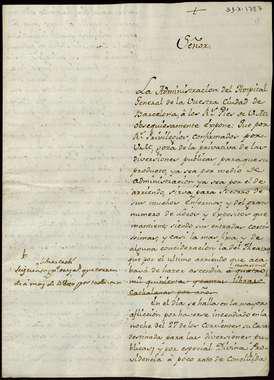 31-X-1787
Señor
La Administracion del Hospital
General de la Vuestra Ciudad de
Barcelona, à los Rs. Pies de V.M.
obsequiosamente Expone: Que por
Rs. Privilegios, confirmados por
V.M., goza de la privativa de las
diversiones publicas, para que su
producto, ya sea por medio de
Administracion ya sea por el de
arriendo, sirva para socorro de
sus muchos enfermos, y del gran
numero de locos y Expositos que
mantiene siendo sus entradas cortis-
simas, y casi la mas fixa y de
alguna consideracion la del Theatro
que por el ultimo arriendo que aca-
baba de hacer ascendia à quatro
mil quinientas libras
Cathalanas por año.
En el dia se halla en la mayor
afliccion por haverse incendiado en la
noche del 27 de los Corrientes su Casa
destinada para las diversiones pu-
blicas; y por especial Divina Pro-
videncia à poco rato de concluida